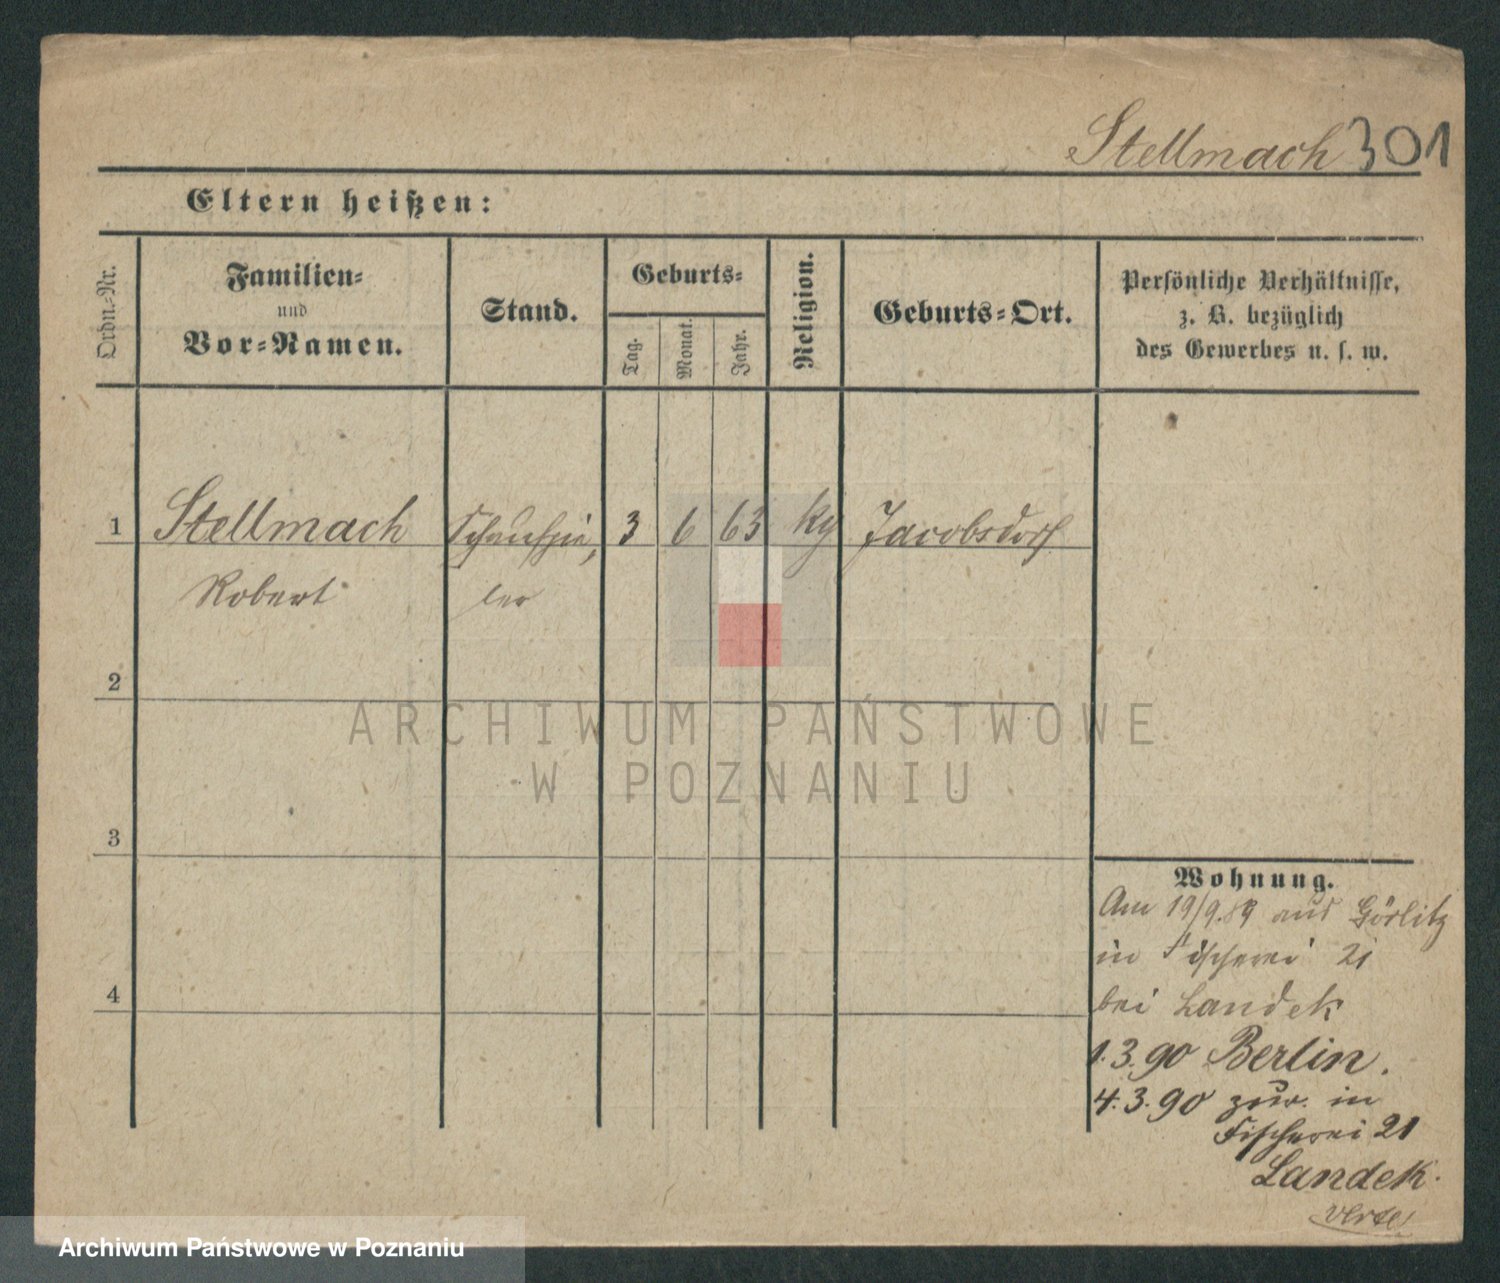 Stellmach 301
Eltern heißen:
Ordn.-Nr.
Familien-
und
Vor-Namen.
Stand.
Geburts-
Tag.
Monat.
Jahr.
Religion.
Geburts-Ort.
Persönliche Verhältnisse,
z. B. bezüglich
des Gewerbes u. s. w.
1 Stellmach Schauspie, 3 6 63 Jacobsdorf
Robert ler
2
ARCHIWUM PAŃSTWOWE
W POZNANIU
3
Wohnung.
Am 19/9.89 aus Görlitz
in Fischerei 21
4
bei Landek
1.3.90 Berlin.
4.3.90 zur. in
Fischerei 21
Landek.
verte
Archiwum Państwowe w Poznaniu